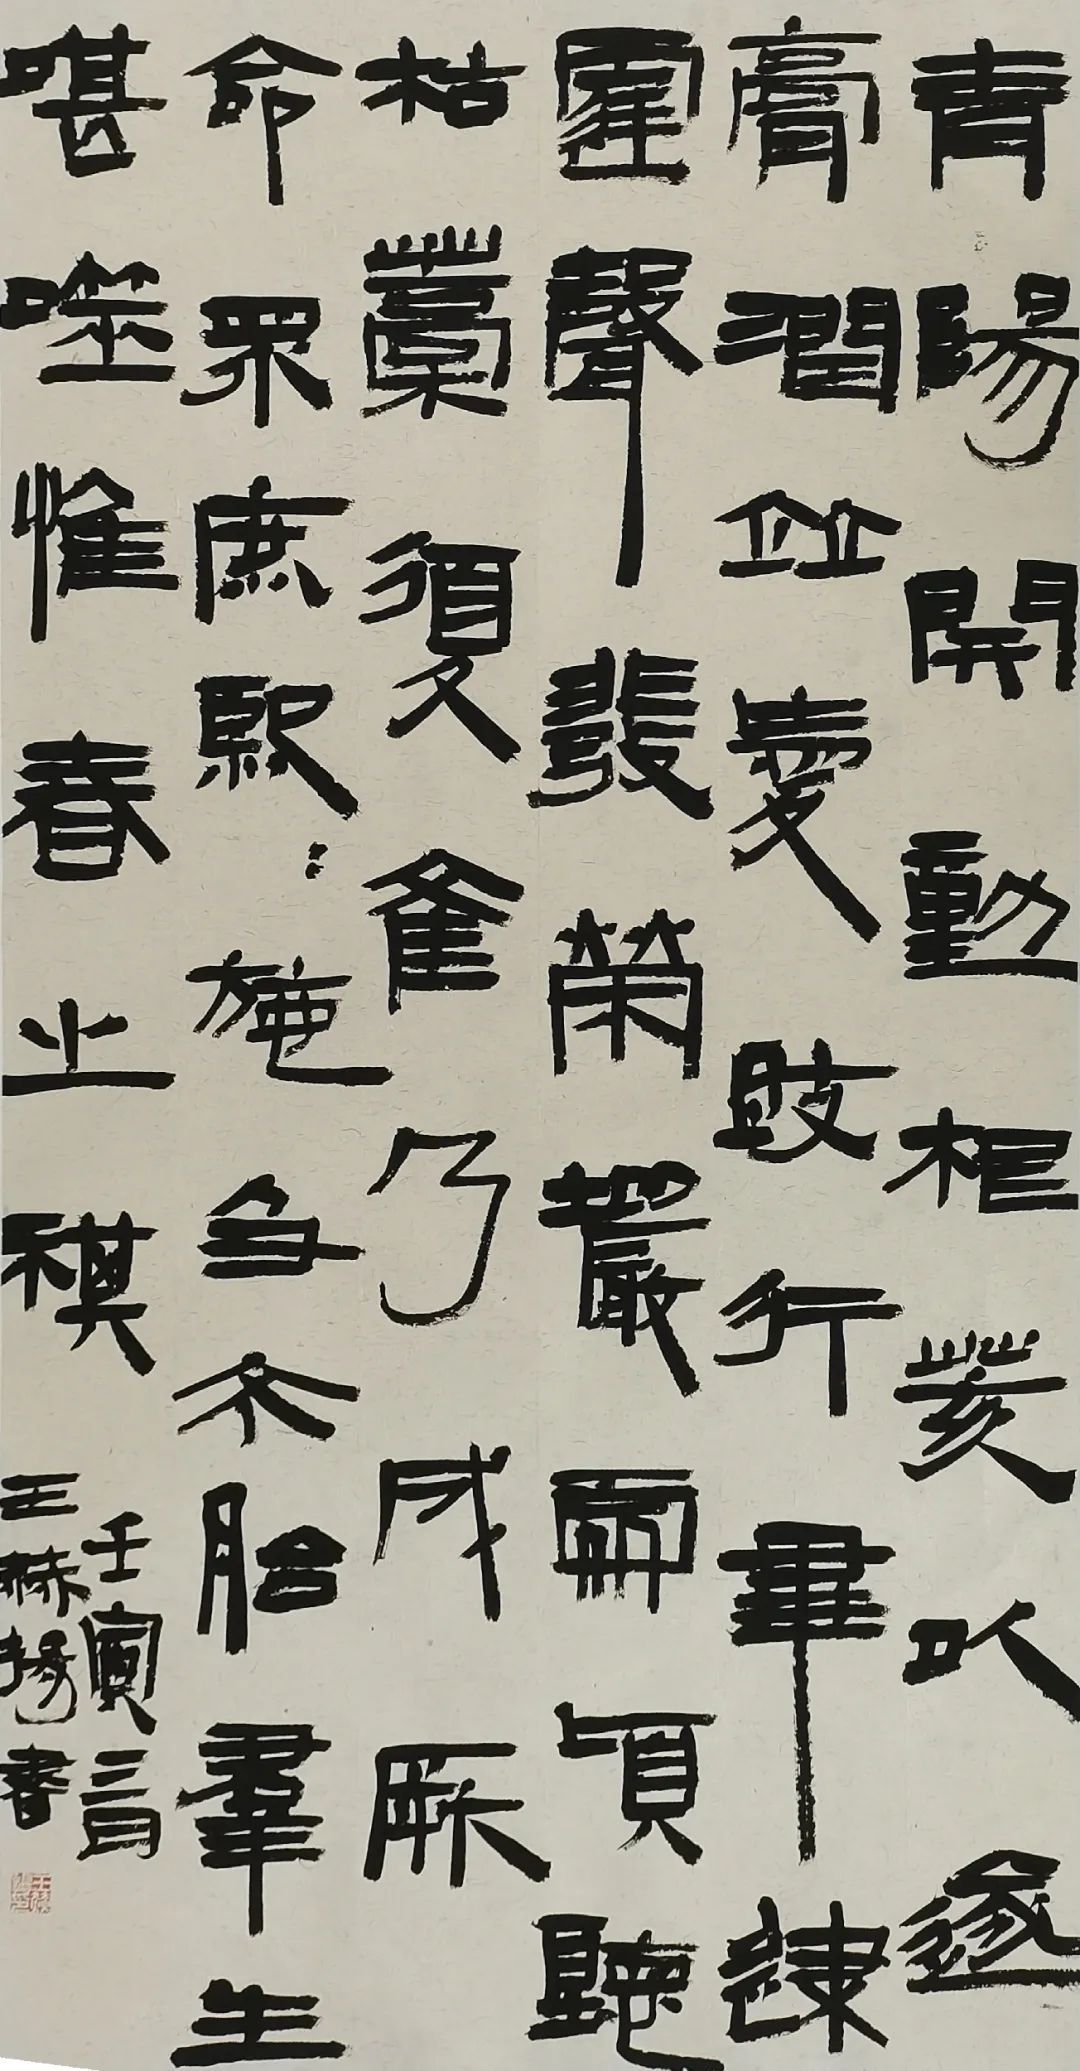 青陽開動根荄以遂
膏潤並愛跂行畢逮
霆聲發榮巖處頃聽
枯藁復產乃成厥
命眾庶熙〻施及夭胎羣生
啿噬惟春之祺
壬寅三月
王赫揚書